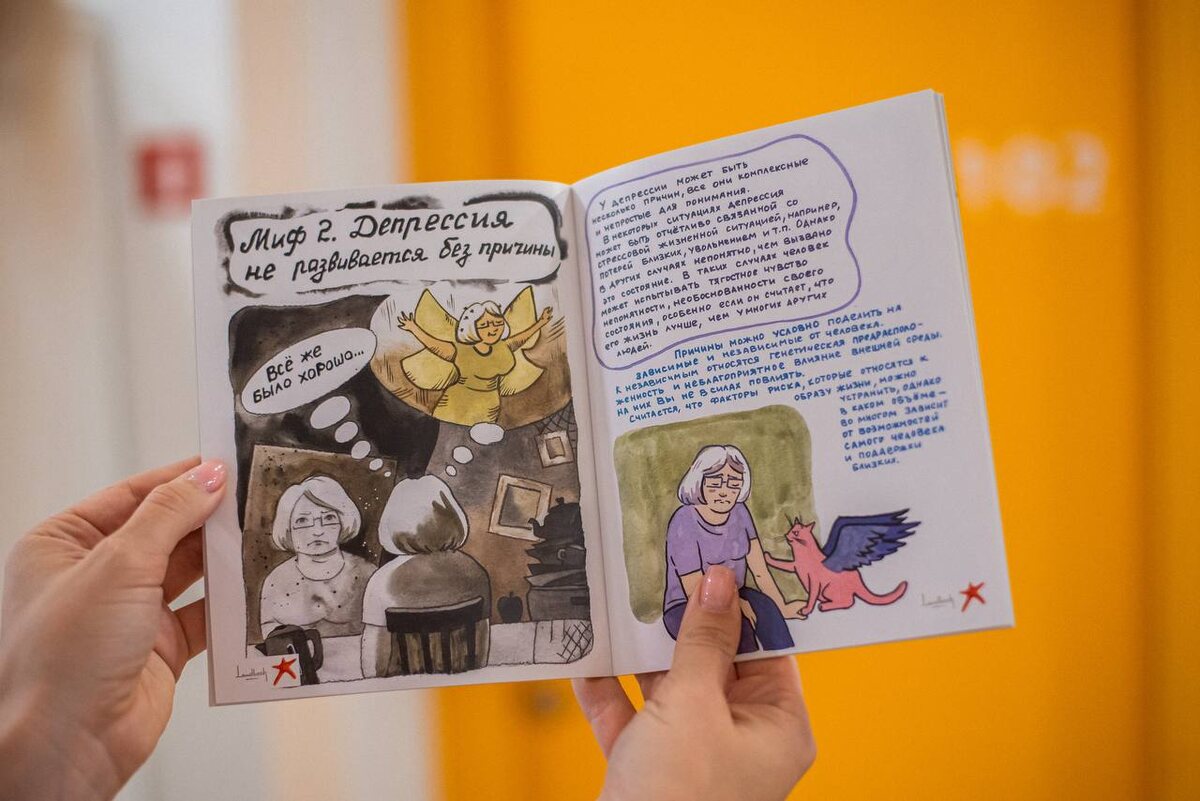 Миф 2. Депрессия
не развивается без причины
Всё же
было хорошо...
У депрессии может быть
несколько причин, все они комплексные
и непростые для понимания.
В некоторых ситуациях депрессия
может быть отчётливо связанной со
стрессовой жизненной ситуацией, например,
потерей близких, увольнением и т.п. Однако
в других случаях непонятно, чем вызвано
это состояние. В таких случаях человек
может испытывать тягостное чувство
непонятности, необоснованности своего
состояния, особенно если он считает, что
его жизнь лучше, чем у многих других
людей.
Причины можно условно поделить на
зависимые и независимые от человека.
К независимым относятся генетическая предрасполо-
женность и неблагоприятное влияние внешней среды.
На них Вы не в силах повлиять.
Считается, что факторы риска, которые относятся к
образу жизни, можно
устранить, однако
в каком объёме –
во многом зависит
от возможностей
самого человека
и поддержки
близких.